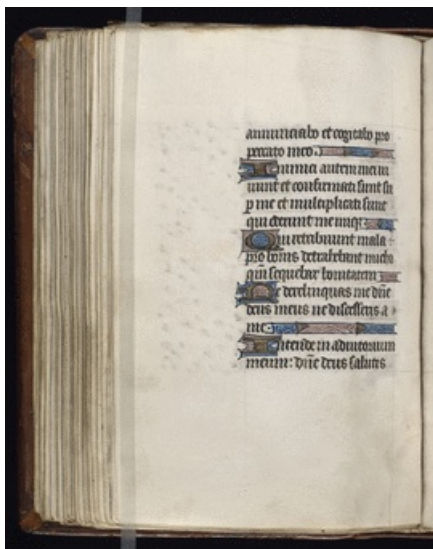 annunciabo et cogitabo pro
peccato meo.
Inimici autem mei vi
vunt et confirmati sunt su
p me et multiplicati sunt
qui oderunt me inique
Qui retribuunt mala
pro bonis detrahebant michi
qm sequebar bonitatem
Ne derelinquas me dne
deus meus ne discesseris a
me.
Intende in adiutorium
meum: dne deus salutis